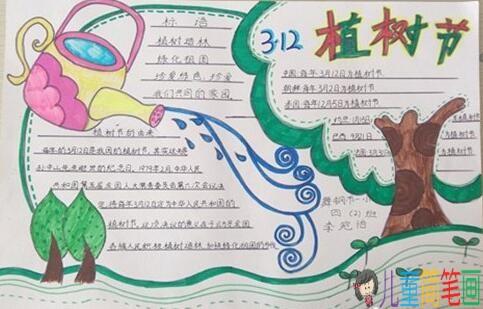 标语
植树造林
绿化祖国
珍爱绿色，珍爱
我们共同的家园
3.12
植树节
中国：每年3月12日为植树节
朝鲜：每年3月2日为植树节
每年12月5日为植树节
约旦：1月15日
为植树节
巴西：9月21日
为植树节
为植树节
植树节的由来
每年的3月12日是我国的植树节，其实这是
孙中山先生逝世的纪念日，1979年2月，中华人民
共和国第五届全国人大常委会第六次会议决
定，将每年3月12日定为中华人民共和国的
植树节
各族人民积极植树造林
四（2）班
儿童简笔画